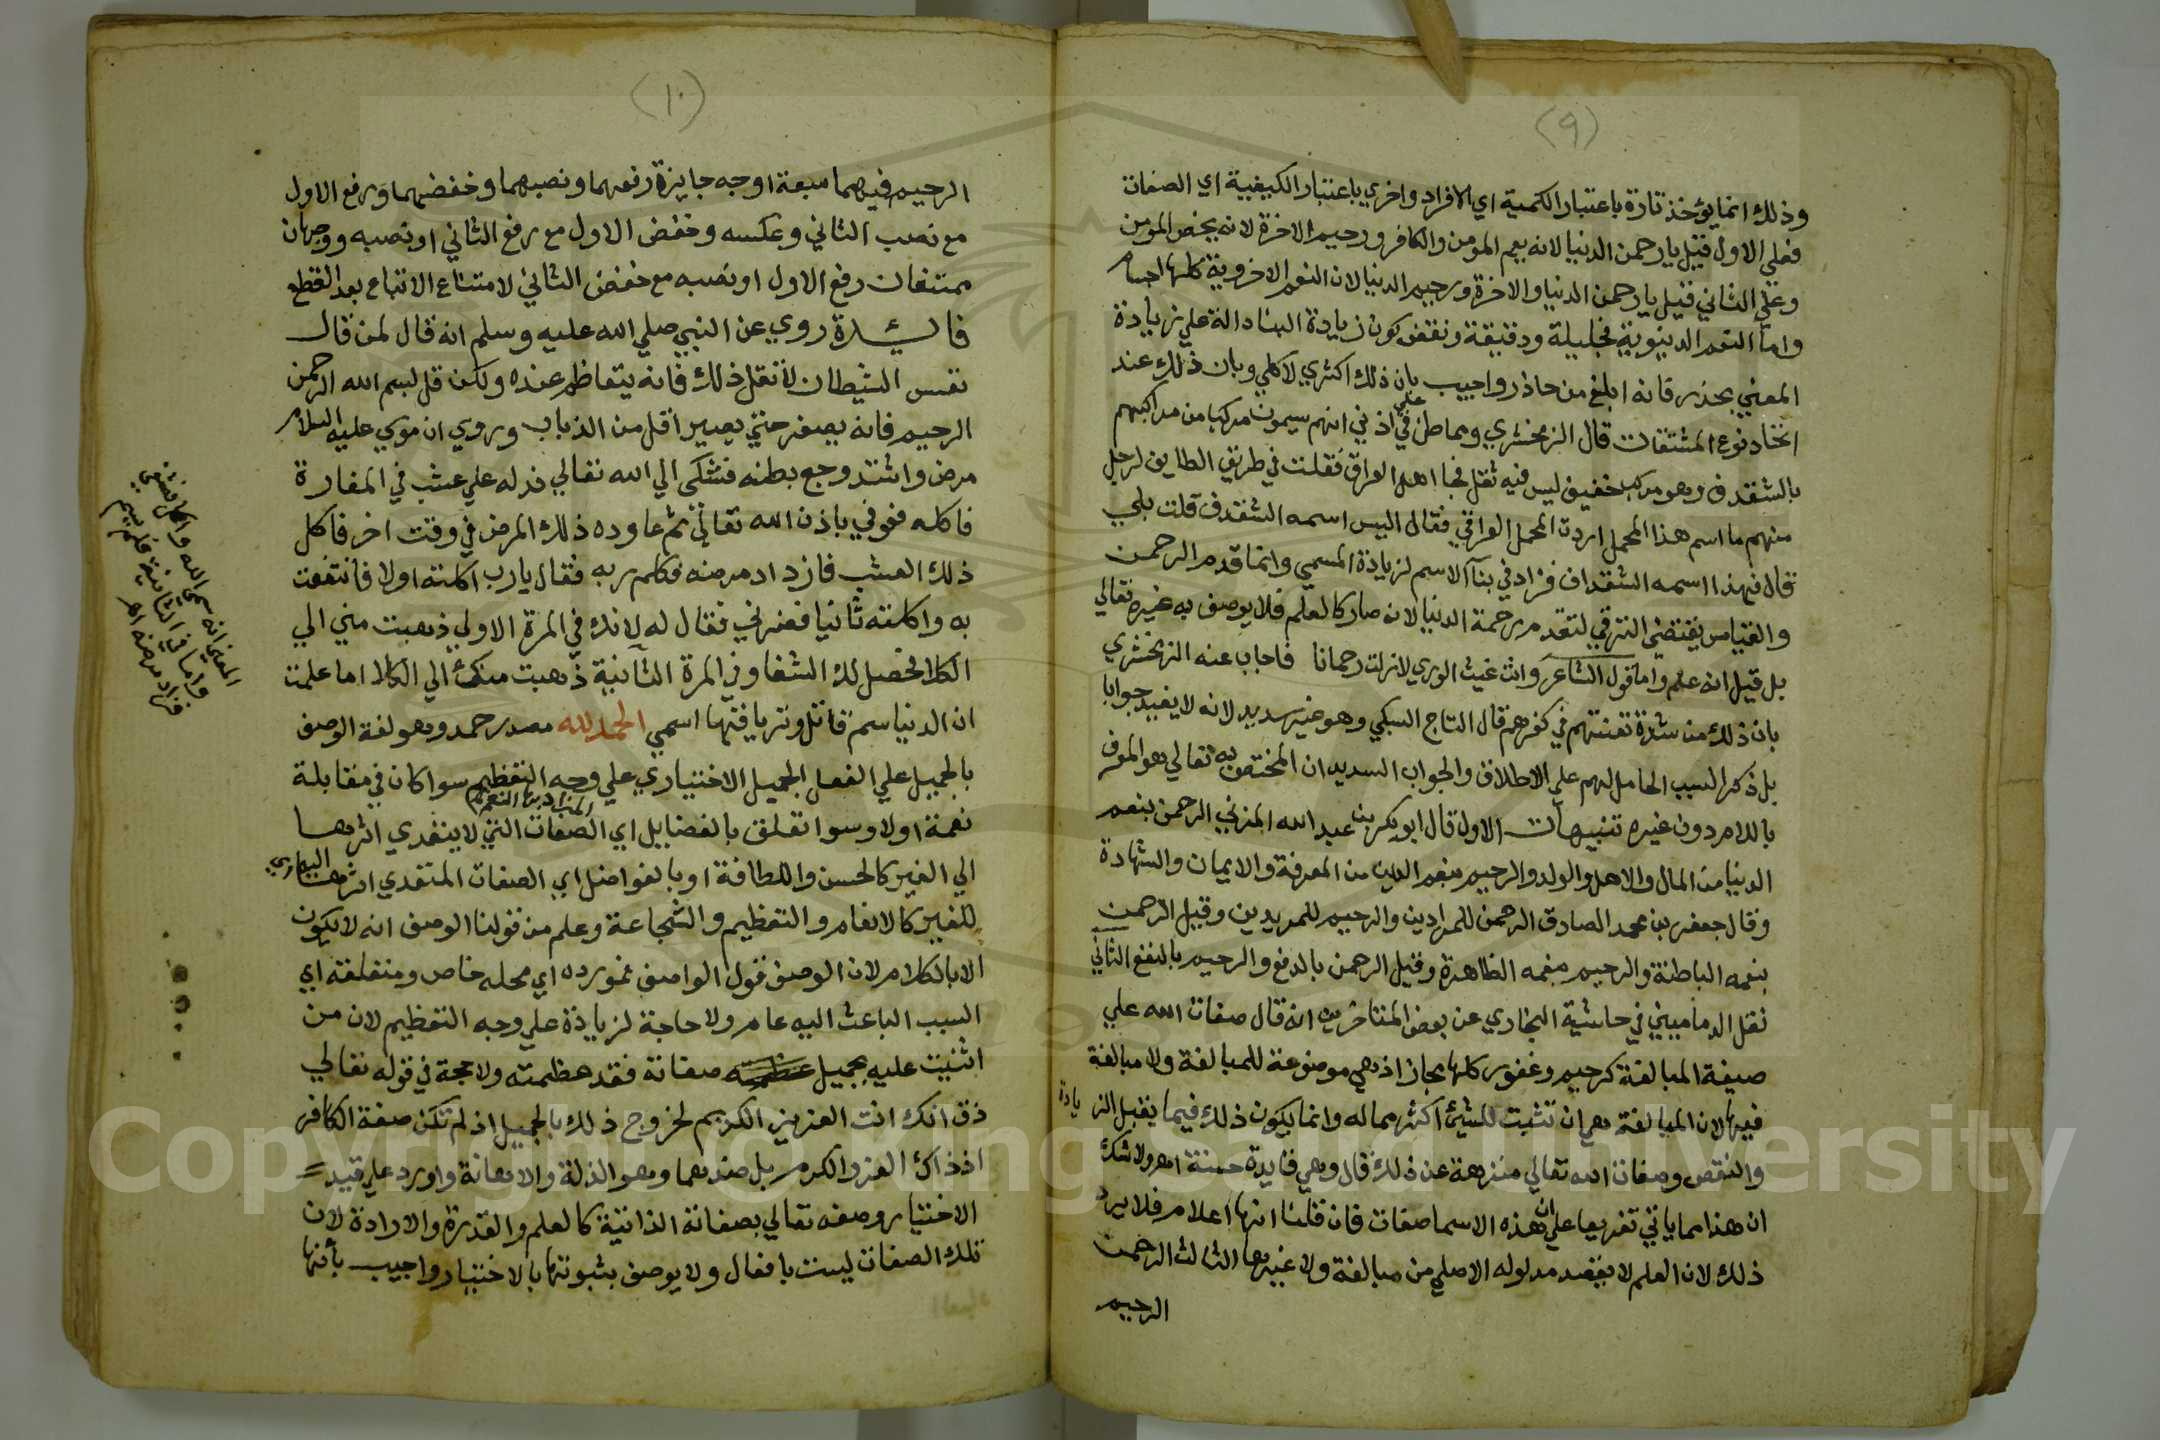 (٩)
وذلك انما يؤخذ تارة باعتبار الكمية اي الافراد واخري باعتبار الكيفية اي الصفات
فعلي الاول قيل يا رحمن الدنيا لانه يعم المومن والكافر ورحيم الاخرة لانه يخص المومن
وعلي الثاني قيل يا رحمن الدنيا والاخرة ورحيم الدنيا لان النعم الاخروية كلها جسام
واما النعم الدنيوية فجليلة ودقيقة ونقض كون زيادة البناء دالة علي زيادة
المعني بحذر فانه ابلغ من حاذر واجيب بان ذلك اكثري لا كلي وبان ذلك عند
اتحاد نوع المشتقات قال الزمخشري ومما طن علي اذني انهم يسمون مركبا من مراكبهم
بالشقدف وهو مركب خفيف ليس فيه ثقل محامل اهل العراق فقلت في طريق الطايف لرجل
منهم ما اسم هذا المحمل اردت المحمل العراقي فقال اليس اسمه الشقدف قلت بلي
قال فهذا اسمه الشقنداف فزاد في بنآ الاسم لزيادة المسمي وانما قدم الرحمن
والقياس يقتضي الترقي لتقدم رحمة الدنيا لانه صار كالعلم فلا يوصف به غيره تعالي
بل قيل انه علم واما قول الشاعر وانت غيث الوري لا زلت رحمانا فاجاب عنه الزمخشري
بان ذلك من شدة تعنتهم في كفرهم قال التاج السبكي وهو غير سديد لانه لا يفيد جوابا
بل ذكر السبب الحامل لهم علي الاطلاق والجواب السديد ان المختص به تعالي هو المعرف
باللام دون غيره تنبيهات الاول قال ابو بكر بن عبد الله المزني الرحمن بنعم
الدنيا من المال والاهل والولد والرحيم بنعم الدين من المعرفة والايمان والشهادة
وقال جعفر بن محمد الصادق الرحمن للمرادين والرحيم للمريدين وقيل الرحمن
بنعمه الباطنة والرحيم بنعمه الظاهرة وقيل الرحمن بالدفع والرحيم بالنفع الثاني
نقل الدماميني في حاشية البخاري عن بعض المتاخرين انه قال صفات الله علي
صيغة المبالغة كرحيم وغفور كلها مجاز اذ هي موضوعة للمبالغة ولا مبالغة
فيها لان المبالغة هي ان تثبت للشيئ اكثر مما له وانما يكون ذلك فيما يقبل الزيادة
والنقص وصفات الله تعالي منزهة عن ذلك قال وهي فايدة حسنة اهـ ولا شك
ان هذا مما ياتي تفريعا علي ان هذه الاسما صفات فان قلنا انها اعلام فلا يرد
ذلك لان العلم لا يقصد مدلوله الاصلي من مبالغة ولا غيرها الثالث الرحمن
الرحيم
(١٠)
الرحيم فيهما سبعة اوجه جايزة رفعهما ونصبهما وخفضهما ورفع الاول
مع نصب الثاني وعكسه وخفض الاول مع رفع الثاني او نصبه ووجهان
ممتنعان رفع الاول او نصبه مع خفض الثاني لامتناع الاتباع بعد القطع
فائدة روي عن النبي صلي الله عليه وسلم انه قال لمن قال
تعس الشيطان لا تقل ذلك فانه يتعاظم عنده ولكن قل بسم الله الرحمن
الرحيم فانه يصغر حتي يصير اقل من الذباب وروي ان موسي عليه السلام
مرض واشتد وجع بطنه فشكي الي الله تعالي فدله علي عشب في المفازة
فاكله فعوفي باذن الله تعالي ثم عاوده ذلك المرض في وقت اخر فاكل
ذلك العشب فازداد مرضه فكلم ربه فقال يارب اكلته اولا فانتفعت
به واكلته ثانيا فضرني فقال له لانك في المرة الاولي ذهبت مني الي
الكلا فحصل لك الشفا وفي المرة الثانية ذهبت منك الي الكلا اما علمت
ان الدنيا سم قاتل وترياقها اسمي الحمد لله مصدر حمد وهو لغة الوصف
بالجميل علي الفعل الجميل الاختياري علي وجه التعظيم سوا كان في مقابلة
نعمة اولا وسوا تعلق بالفضايل اي الصفات التي لا يتعدي اثرها
الي الغير كالحسن واللطافة او بالفواضل اي الصفات المتعدي اثرها
للغير كالانعام والتعظيم والشجاعة وعلم من قولنا الوصف انه لا يكون
الا بالكلام لان الوصف قول الواصف فمورده اي محله خاص ومتعلقه اي
السبب الباعث اليه عام ولا حاجة لزيادة علي وجه التعظيم لان من
اثنيت عليه بجميل صفاته فقد عظمته ولا حجة في قوله تعالي
ذق انك انت العزيز الكريم لخروج ذلك بالجميل اذ لم تكن صفة الكافر
اذ ذاك العز والكرم بل ضدهما وهو الذلة والاهانة واورد علي قيد
الاختيار وصفه تعالي بصفاته الذاتية كالعلم والقدرة والارادة لان
تلك الصفات ليست بافعال ولا يوصف بثبوتها بالاختيار واجيب بأنها
Copyright © King Saud University